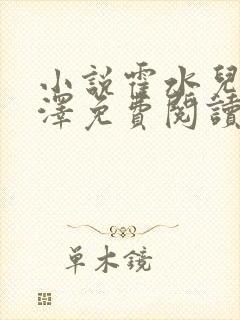 小說霍水兒
澤免費閱讀
單木鏡